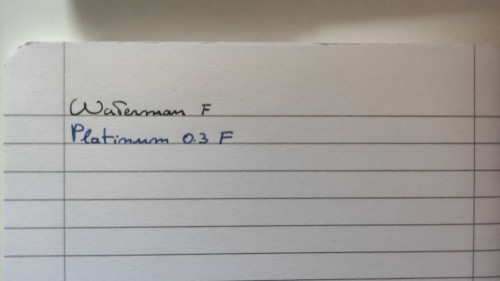 Waterman F
Platinum 0.3 F